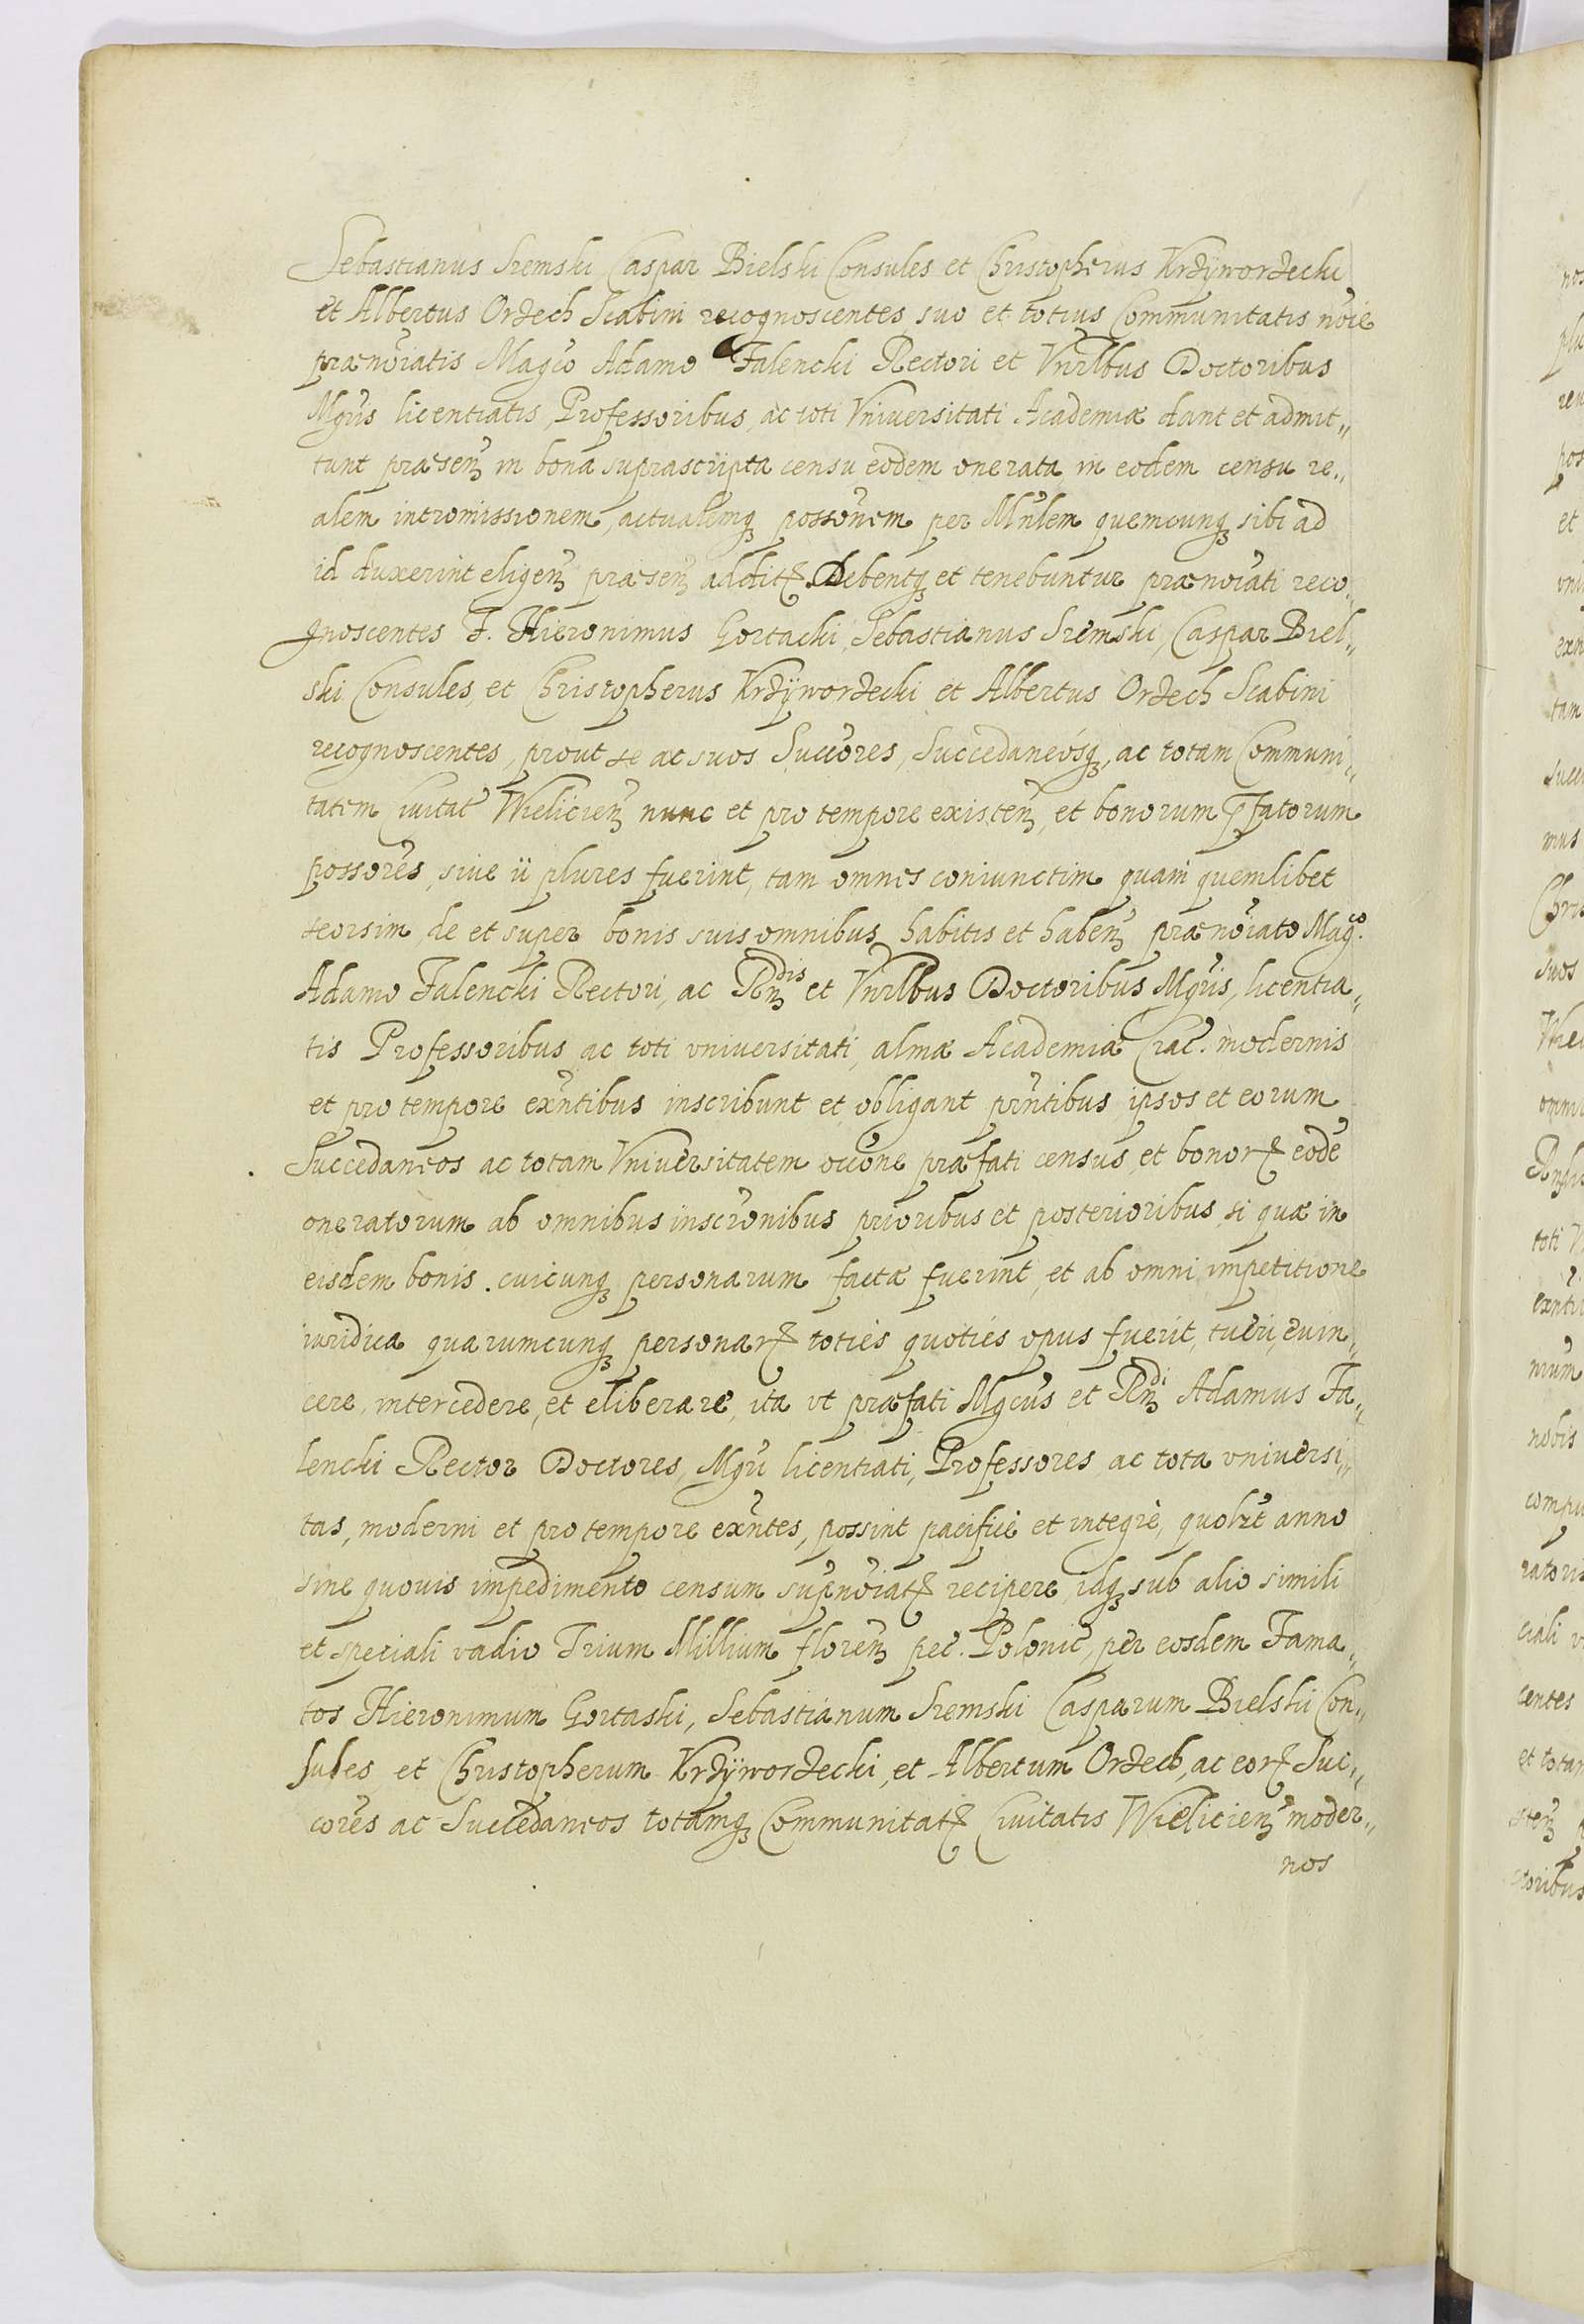 Sebastianus Sremski Caspar Bielski Consules et Christopherus Krzÿwordecki
et Albertus Ordech Scabini recognoscentes suo et totius Communitatis nõie
prænõiatis Magco Adamo Falencki Rectori et Vnrlbus Doctoribus
Mgris licentiatis Professoribus, ac toti Vniuersitati Academiæ dant et admit„
tunt præsenꝫ in bona suprascripta censu eodem onerata in eodem censu re„
alem intromissionem, actualemqꝫ possõnem per Mñlem quemcunqꝫ sibi ad
id duxerint eligenꝫ præsenꝫ addit. Debentqꝫ et tenebuntur prænõiati reco„
gnoscentes F. Hieronimus Gortacki, Sebastianus Sremski, Caspar Biel„
ski Consules, et Christopherus Krzÿwordecki et Albertus Ordech Scabini
recognoscentes, prout se ac suos Succores, Succedaneósqꝫ, ac totam Communi„
tatem Ciuitat Wielicienꝫ nunc et pro tempore existenꝫ, et bonorum pfatorum
possores, siue ii plures fuerint, tam omnes coniunctim quam quemlibet
seorsim, de et super bonis suis omnibus habitis et habenꝫ prænõiato Magco.
Adamo Falencki Rectori, ac Rnꝫdis et Vnrlbus Doctoribus Mgris, licentia„
tis Professoribus ac toti vniuersitati, almæ Academiæ Crac. modernis
et pro tempore exñtibus inscribunt et obligant prñtibus ipsos et eorum
Succedaneos ac totam Vniuersitatem occõne præfati census, et bonorꝝ eodẽ
oneratorum ab omnibus inscrõnibus prioribus et posterioribus, si quæ in
eisdem bonis. cuicunqꝫ personarum factæ fuerint, et ab omni impetitione
iuridica quarumcunqꝫ personarꝝ toties quoties opus fuerit, tueri, euin„
cere, intercedere, et eliberare, ita vt præfati Mgcus et Rnꝫdi Adamus Fa„
lencki Rector Doctores, Mgri licentiati, Professores ac tota vniuersi„
tas, moderni et pro tempore exñtes, possint pacificè et integrè, quolzt anno
sine quouis impedimento censum supnõiatꝝ recipere, idqꝫ sub alio simili
et speciali vadio Trium Millium florenꝫ pec. Polonic, per eosdem Fama„
tos Hieronimum Gortaski, Sebastianum Sremski Casparum Bielski Con„
sules et Christopherum Krzÿwordecki, et Albertum Ordech, ac eorꝝ Suc„
cores ac Succedaneos totamqꝫ Communitatꝝ Ciuitatis Wielicienꝫ moder„
nos